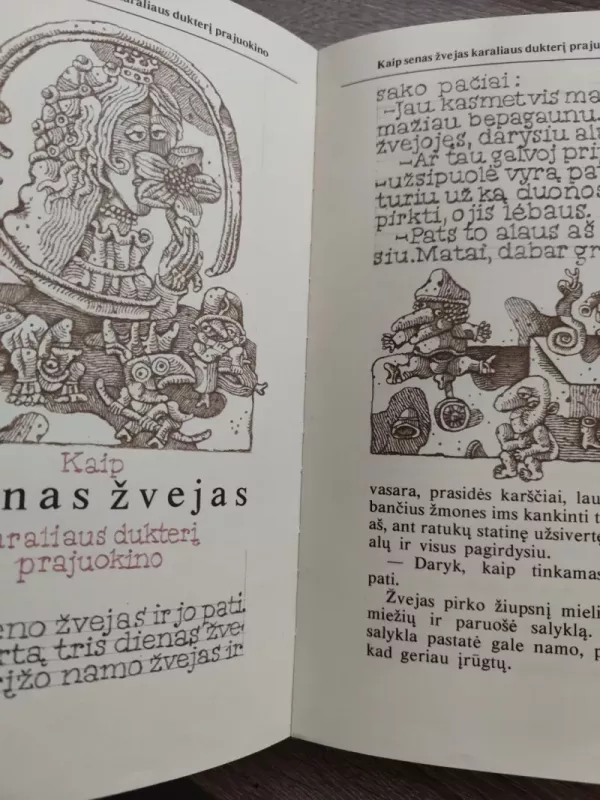 karaliaus dukterį prajuokino
Kaip
enas žvejas
karaliaus dukterį
prajuokino
eno žvejas ir jo pati.
rtą tris dienas žve-
rįžo namo žvejas ir
Kaip senas žvejas karaliaus dukterį praju
sako pačiai:
—Jau kasmet vis ma
mažiau bepagaunu.
žvejojęs, darysiu alu
—Ar tau galvoj pri
—užsipuolė vyrą pat
turiu už ką duonos
pirkti, o jis lėbaus.
—Pats to alaus aš
siu. Matai, dabar gr
vasara, prasidės karščiai, lau
bančius žmones ims kankinti t
aš, ant ratukų statinę užsivertę
alų ir visus pagirdysiu.
— Daryk, kaip tinkamas
pati.
Žvejas pirko žiupsnį mieli
miežių ir paruošė salyklą.
salykla pastatė gale namo, p
kad geriau įrūgtų.